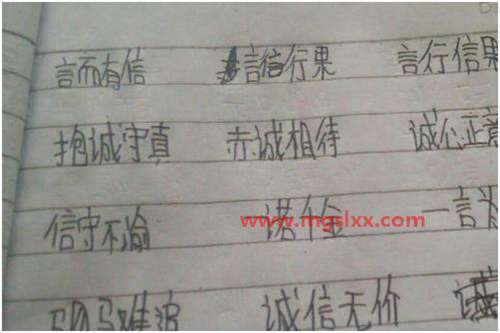 言而有信 言信行果 言行信果
抱诚守真 赤诚相待 诚心正意
信守不渝 诺千金 一言为
www.mgslxx.com
驷马难追 诚信无价 诚